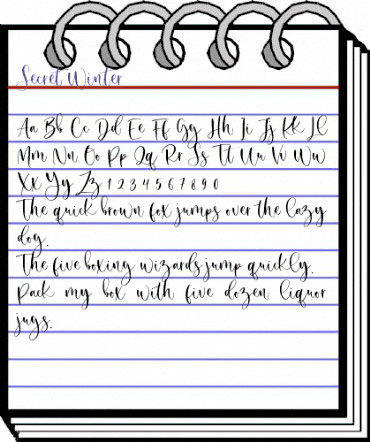 Secret Winter
Aa Bb Cc Dd Ee Ff Gg Hh Ii Jj Kk Ll
Mm Nn Oo Pp Qq Rr Ss Tt Uu Vv Ww
Xx Yy Zz 1 2 3 4 5 6 7 8 9 0
The quick brown fox jumps over the lazy
dog.
The five boxing wizards jump quickly.
Pack my box with five dozen liquor
jugs.